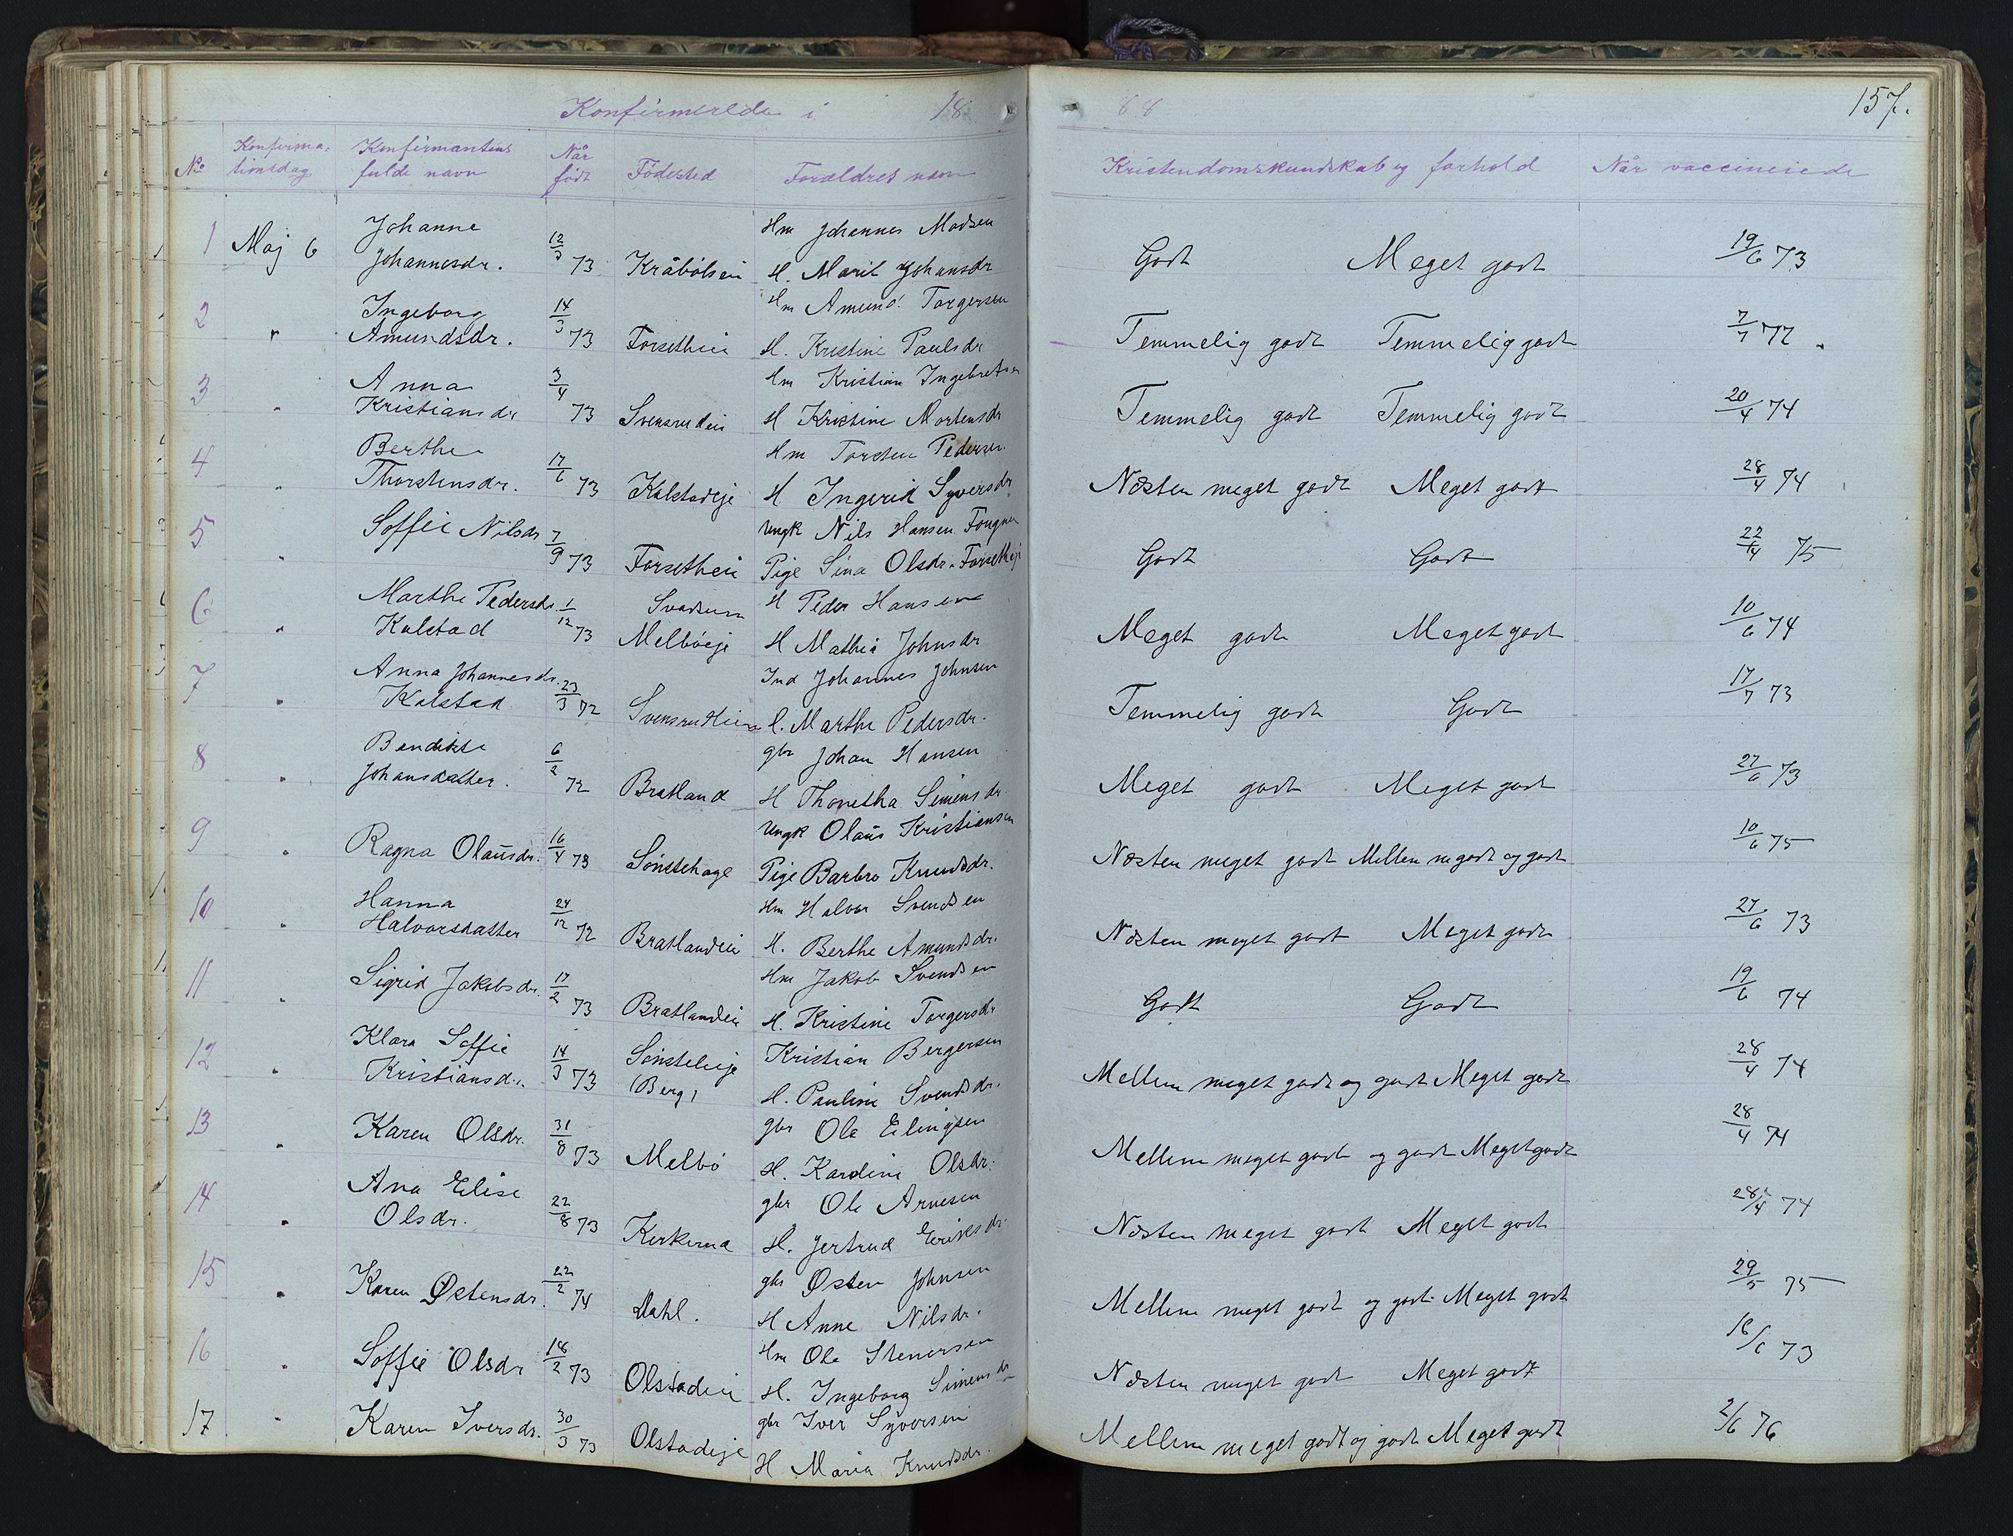 Konfirmerede i 18 88 157.
No Konfirma, Konfirmantens Når Fødested Foraldres navn Kristendomskundskab og forhold Når vaccinerede
tionsdag fulde navn født
1 Maj 6 Johanne 12/3 73 Kråbølsein Hm Johannes Madsen Godt Meget godt 19/6 73
Johannesdr. H. Marit Johansdr
2 " Ingeborg 14/3 73 Forsetheie Hm Amund Torgersen Temmelig godt Temmelig godt 7/7 77.
Amundsdr. H. Kristine Paulsdr
3 " Anna 3/4 73 Svensrudeie Hm Kristian Ingebretsen Temmelig godt Temmelig godt 20/4 74
Kristiansdr H Kristine Mortensdr
4 " Berthe 17/6 73 Kalstadeje Hm Torsten Pedersen Næsten meget godt Meget godt 28/4 74
Thorstensdr. H Ingerid Syversdr
5 " Soffie Nilsdr 7/9 73 Forsetheie Ungk Nils Hansen Fougner Godt Godt 22/4 75
Pige Sina Olsdr. Forsetheje
6 " Marthe Pedersdr. 1/12 73 Svadsum H Peder Hansen Meget godt Meget godt 10/6 74
Kalstad Melbøeje H Mathia Johnsdr
7 " Anna Johannesdr. 23/3 72 Svensrudeie Ind Johannes Johnsen Temmelig godt Godt 17/7 73
Kalstad H. Marthe Pedersdr.
8 " Bendikte 6/2 72 Bratland gbr Johan Hansen Meget godt Meget godt 27/6 73
Johansdatter. H Thonetha Simensdr.
9 " Ragna Olausdr. 16/4 73 Sønstehage Ungk Olaus Kristiansen Næsten meget godt Mellem m godt og godt 10/6 75
Pige Barbro Knudsdr.
10 " Hanna 24/12 72 Bratlandeie Hm Halvor Svendsen Næsten meget godt Meget godt 27/6 73
Halvorsdatter H. Berthe Amundsdr.
11 " Sigrid Jakobsdr. 17/2 73 Bratlandeie Hm Jakob Svendsen Godt Godt 19/6 74
H. Kristine Torgersdr
12 Klara Soffie 14/3 73 Sønsteheje Kristian Bergersen Mellem meget godt og godt Meget godt 28/4 74
Kristiansdr. (Berg) H. Pauline Svendsdr.
13 " Karen Olsdr. 31/8 73 Melbø gbr Ole Elingsen Mellem meget godt og godt Meget godt 28/4 74
H. Kardine Olsdr.
14 " Ana Elise 22/8 73 Kirkerud gbr Ole Arnesen Næsten meget godt Meget godt 28/4 74
Olsdr. H. Jertrud Eriksdr.
15 " Karen Østensdr. 22/2 74 Dahl. gbr Østen Johnsen Mellem meget godt og godt Meget godt 29/5 75
H Anne Nilsdr.
16 " Soffie Olsdr 18/2 73 Olstadeie Hm Ole Stenersen Næsten meget godt Meget godt 16/6 73
H. Ingeborg Simensdr
17 " Karen Iversdr. 30/3 73 Olstadeje gbr Iver Syversen Mellem meget godt og godt Meget godt 2/6 76
H Maria Knudsdr.